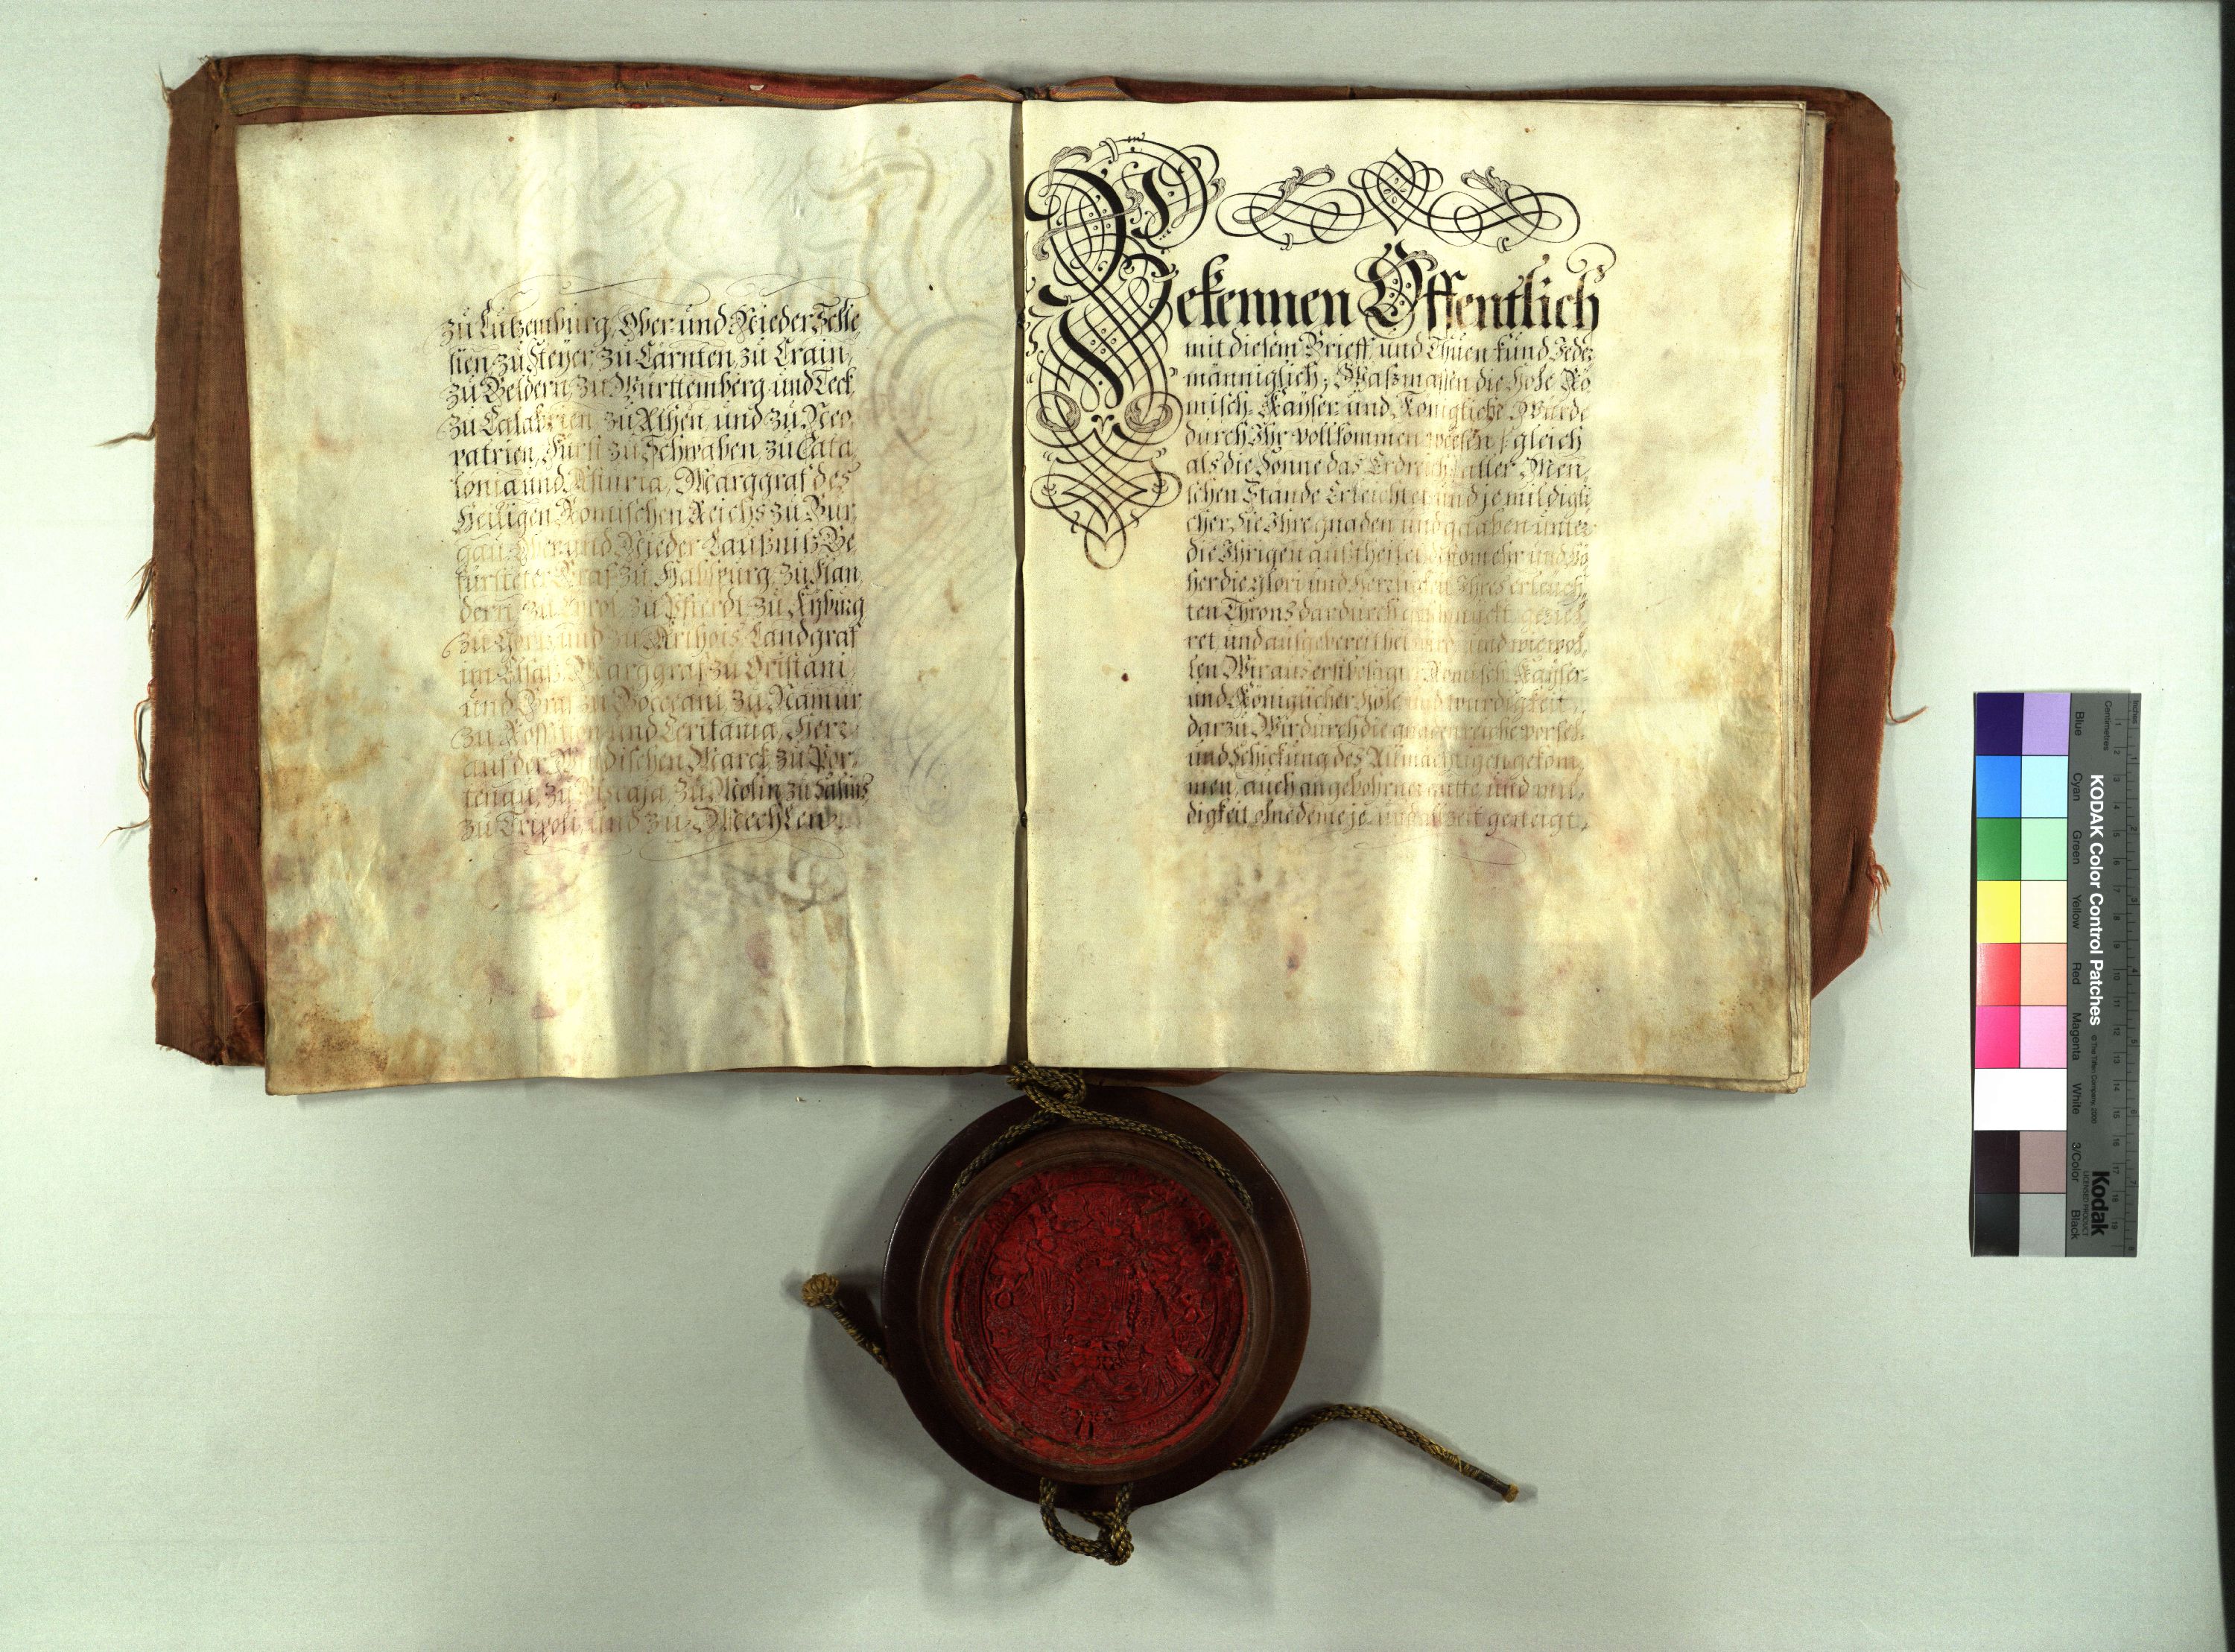 zu Lützemburg, Ober: und Nieder Schle,
sien, zu Steyer, zu Cärnten, zu Crain,
zu Geldern, zu Württemberg und Teck,
zu Calabrien, zu Athen, und zu Neo,
patrien, Fürst zu Schwaben, zu Cata,
lonia und Asturia, Marggraf des
Heiligen Römischen Reichs zu Bur,
gau, Ober und Nieder Laußnitz, Ge,
fürsteter Graf zu Habspurg, zu Flan,
dern, zu Tyrol, zu Pfierdt, zu Kyburg
zu Görz und zu Arthois, Landgraf
im Elsaß, Marggraf zu Oristani,
und Graf zu Goceani, zu Namur
zu Rossilion und Ceritania, Herr
auf der Windischen Marck, zu Por,
tenau, zu Biscaja, zu Molin, zu Salins
zu Tripoli und zu Mecheln.
Wir
Bekennen Öffentlich
mit diesem Brieff, und Thuen kund Jeder
männiglich, Waßmassen die Hohe Rö
misch: Kayser: und Königliche Würde
durch Ihr vollkommen weesen, gleich
als die Sonne das Erdreich, aller Men,
schen Stände Erleichtet und je mildigli
cher, die Ihre gnaden und gaaben unter
die Ihrigen außtheilet, umb so mehr und hö
her die glori und Herrlichkeit Ihres erleuch,
ten Throns dardurch geschmuckt, gezieh,
ret, und außgebereithet wird, und wie wol,
len Wir auß erstbesagter Römisch: Kayser:
und Königlicher Höhe und würdigkeit,
darzu Wir durch die gnadenreiche vorseh:
und Schickung des Allmächtigen gekom,
men, auch angebohrner gütte, und mil,
digkeit ohnedeme je und allzeit geneigt,
KODAK Color Control Patches
© The Tiffen Company, 2000
Kodak
LICENSED PRODUCT
Inches
Centimetres
Blue
Cyan
Green
Yellow
Red
Magenta
White
3/Color
Black